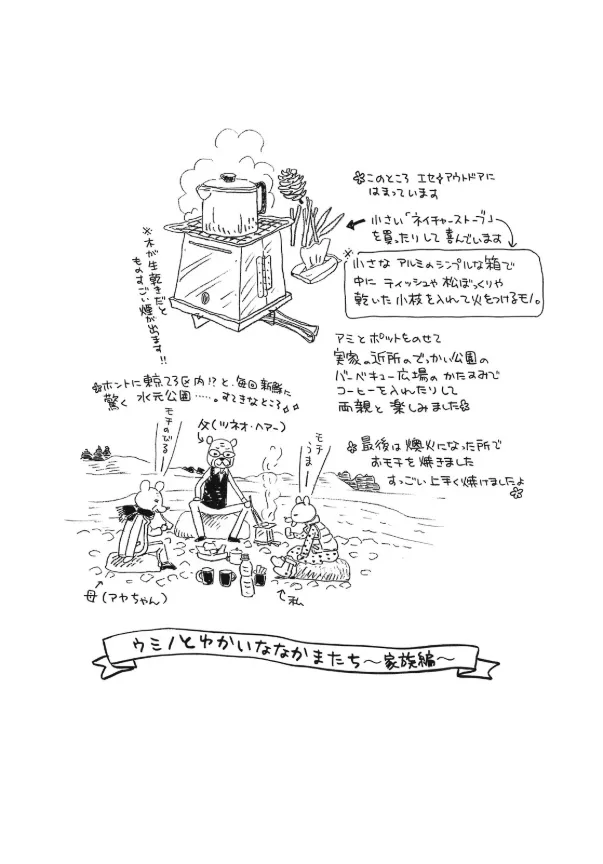 ✿このところ エセ アウトドアに
はまっています
小さい「ネイチャーストーブ」
を買ったりして喜んでいます
※
小さな アルミのランプルな箱で
中に ティッシュや 松ぼっくりや
乾いた 小枝を入れて火をつけるモノ。
※木が生乾きだと
ものすごい煙が出ます!!
アミとポットをのせて
実家の近所のでっかい公園の
バーベキュー広場のかたすみで
コーヒーを入れたりして
両親と楽しみました✿
✿ホントに東京23区内!?と、毎回新鮮に
驚く 水元公園……。すてきなところ♪
モチのびる
父(ツネオ・ヘアー)
モチうま
✿最後は燠火になった所で
おモチを焼きました
すっごい上手く焼けましたよ✿
母(アヤちゃん)
私
ウミノとゆかいななかまたち〜家族編〜